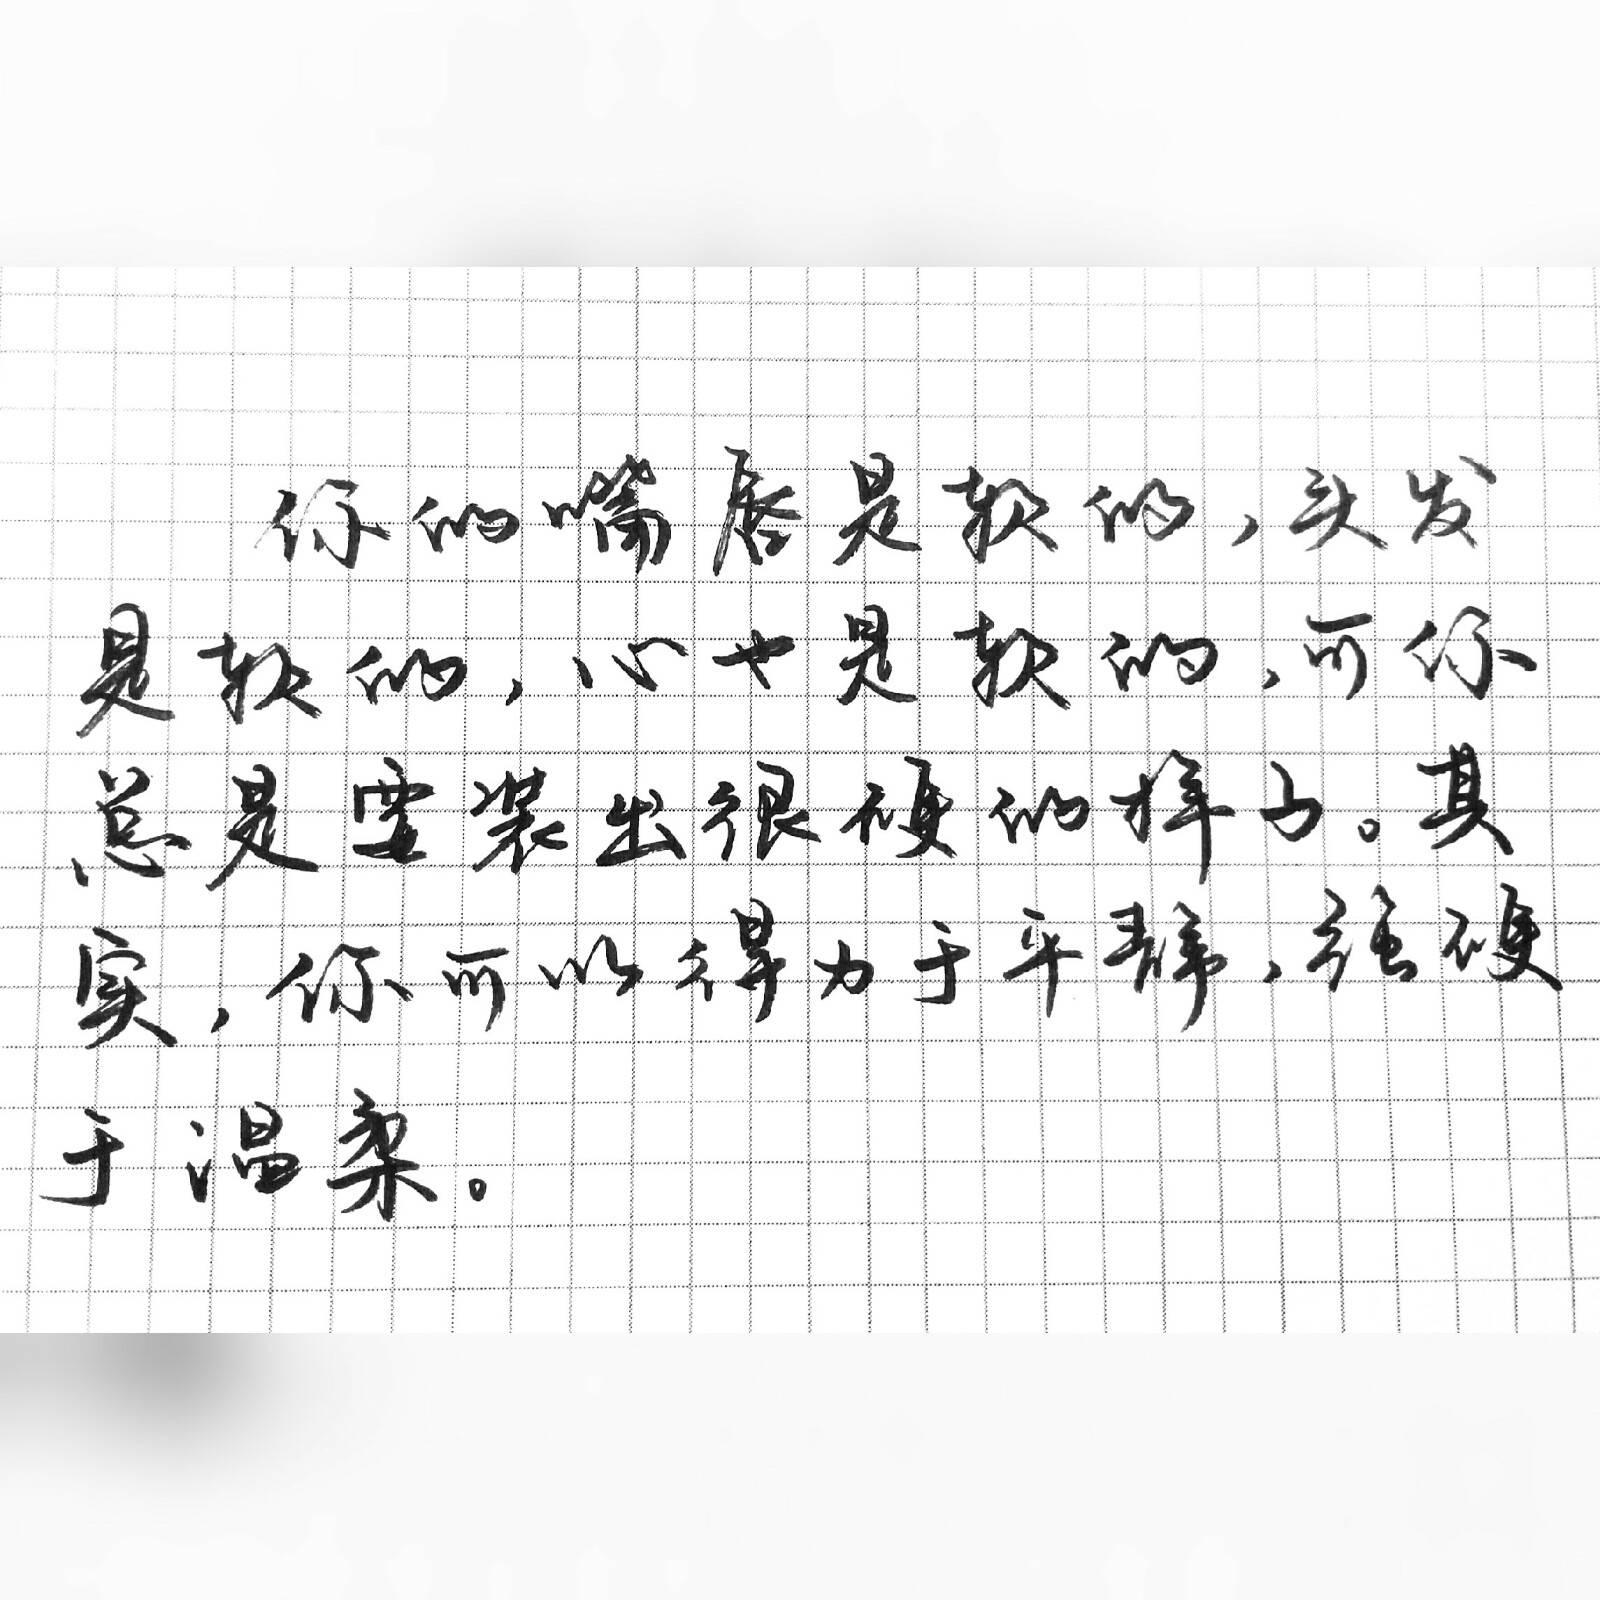 你的嘴唇是软的，头发
是软的，心也是软的，可你
总是要装出很硬的样子。其
实，你可以得力于平静，强硬
于温柔。